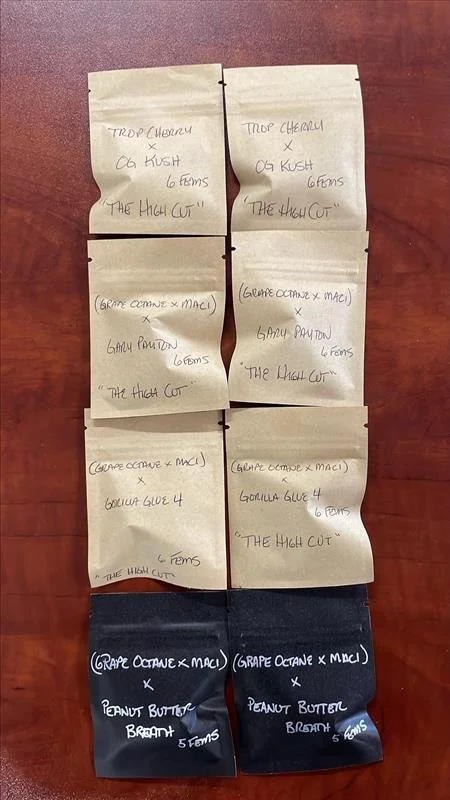 TROP CHERRY
X
OG KUSH
6 FEMS
"THE HIGH CUT"
TROP CHERRY
X
OG KUSH
6 FEMS
"THE HIGH CUT"
(GRAPE OCTANE X MAC1)
X
GARY PAYTON
6 FEMS
"THE HIGH CUT"
(GRAPE OCTANE X MAC1)
X
GARY PAYTON
6 FEMS
"THE HIGH CUT"
(GRAPE OCTANE X MAC1)
X
GORILLA GLUE 4
6 FEMS
"THE HIGH CUT"
(GRAPE OCTANE X MAC1)
X
GORILLA GLUE 4
6 FEMS
"THE HIGH CUT"
(GRAPE OCTANE X MAC1)
X
PEANUT BUTTER
BREATH
5 FEMS
(GRAPE OCTANE X MAC1)
X
PEANUT BUTTER
BREATH
5 FEMS